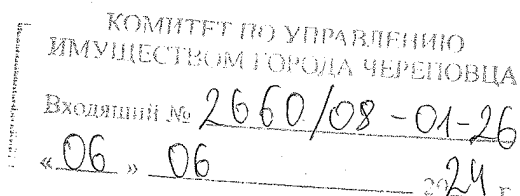 КОМИТЕТ ПО УПРАВЛЕНИЮ
ИМУЩЕСТВОМ ГОРОДА ЧЕРЕПОВЦА
Входящий № 2660/08-01-26
«06» 06 2024 г.